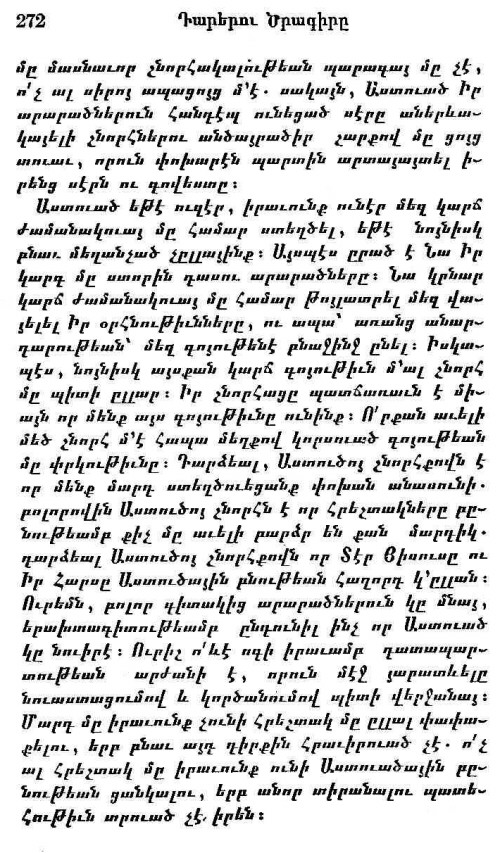 272 Դարերու Ծրագիրը
մը մասնաւոր չնորհակալութեան պարագայ մը չէ,
ո՛չ ալ սիրոյ ապացոյց մ՚է. սակայն, Աստուած Իր
արարածներուն հանդէպ ունեցած սէրը աներևա-
կայելի շնորհներու անծայրածիր շարքով մը ցոյց
տուաւ, որուն փոխարէն պարտին արտայայտել ի-
րենց սէրն ու գովեստը։
Աստուած եթէ ուզէր, իրաւունք ունէր մեզ կարճ
ժամանակուայ մը համար ստեղծել, եթէ նոյնիսկ
բնաւ մեղանչած չըլլայինք։ Այսպէս ըրած է Նա Իր
կարգ մը ստորին դասու արարածները։ Նա կրնար
կարճ ժամանակուայ մը համար թոյլատրել մեզ վա-
յելել Իր օրհնութիւնները, ու ապա՝ առանց անար-
դարութեան՝ մեզ գոյութենէ բնաջինջ ընել։ Իսկա-
պէս, նոյնիսկ այսքան կարճ գոյութիւն մ՚ալ շնորհ
մը պիտի ըլլար։ Իր շնորհացը պատճառաւն է մի-
այն որ մենք այս գոյութիւնը ունինք։ Ո՛րքան աւելի
մեծ շնորհ մ՚է հապա մեղքով կորսուած գոյութեան
մը փրկութիւնը։ Դարձեալ, Աստուծոյ շնորհքովն է
որ մենք մարդ ստեղծուեցանք փոխան անասունի.
բոլորովին Աստուծոյ շնորհն է որ հրեշտակները բը-
նութեամբ քիչ մը աւելի բարձր են քան մարդիկ.
դարձեալ Աստուծոյ շնորհքովն որ Տէր Յիսուսը ու
Իր Հարսը Աստուծային բնութեան հաղորդ կ՚ըլլան։
Ուրեմն, բոլոր գիտակից արարածներուն կը մնայ,
երախտագիտութեամբ ընդունիլ ինչ որ Աստուած
կը նուիրէ։ Ուրիշ ո՛ևէ ոգի իրաւամբ դատապար-
տութեան արժանի է, որուն մէջ յարատևելը
նուաստացումով և կործանումով պիտի վերջանայ։
Մարդ մը իրաւունք չունի հրեշտակ մը ըլլալ փափա-
քելու, երբ բնաւ այդ դիրքին հրաւիրուած չէ. ո՛չ
ալ հրեշտակ մը իրաւունք ունի Աստուածային բը-
նութեան ցանկալու, երբ անոր տիրանալու պատե-
հութիւն տրուած չէ իրեն։